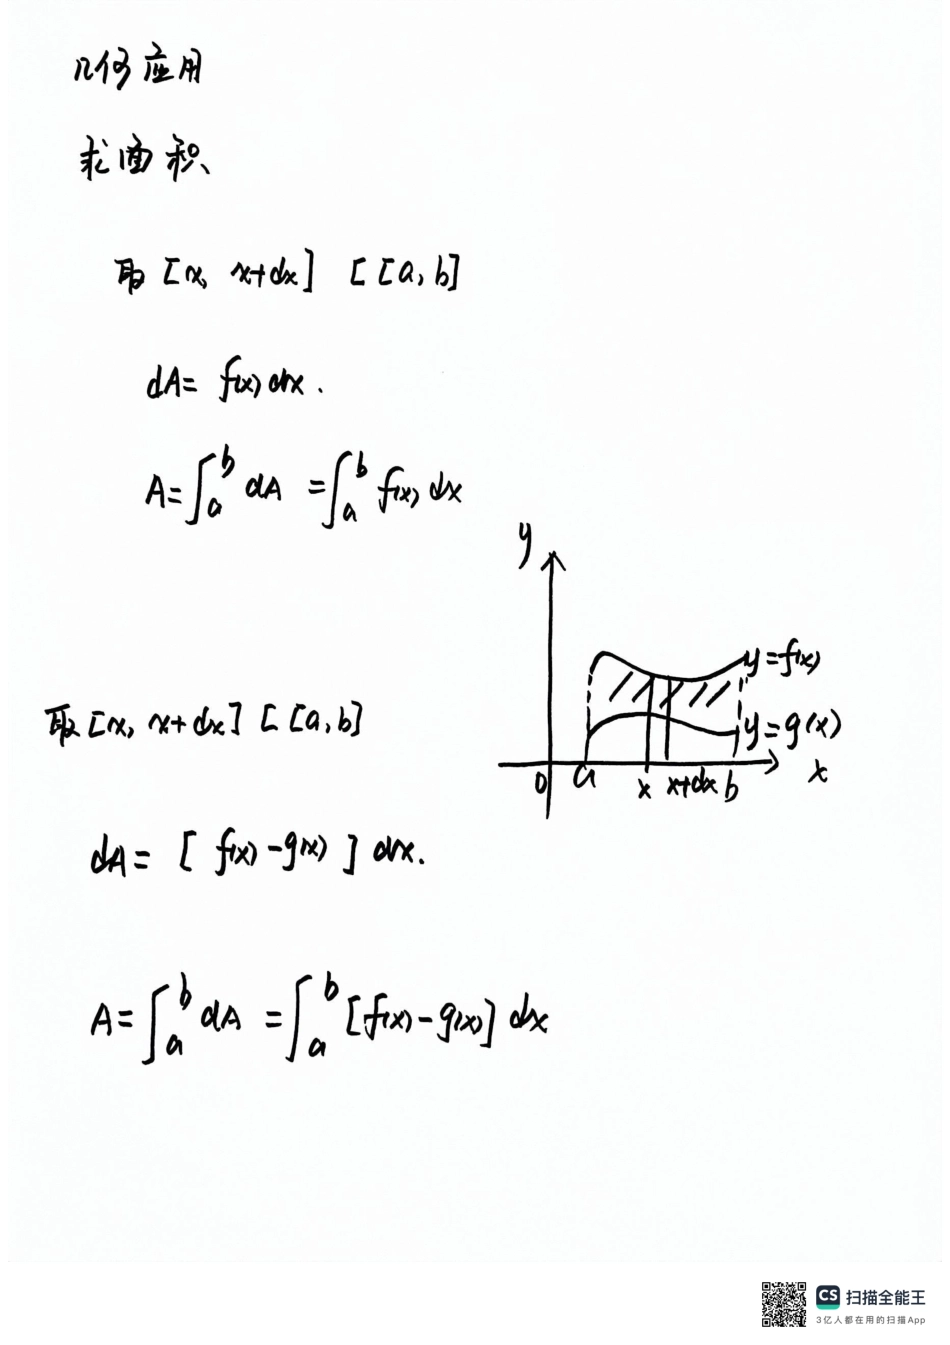 几何应用
求面积
取 [x, x+dx] [ [a, b]
dA = f(x) dx.
A = ∫_a^b dA = ∫_a^b f(x) dx
y
y = f(x)
取 [x, x+dx] [ [a, b]
y = g(x)
0 a x x+dx b x
dA = [ f(x) - g(x) ] dx.
A = ∫_a^b dA = ∫_a^b [f(x) - g(x)] dx
CS 扫描全能王
3亿人都在用的扫描App